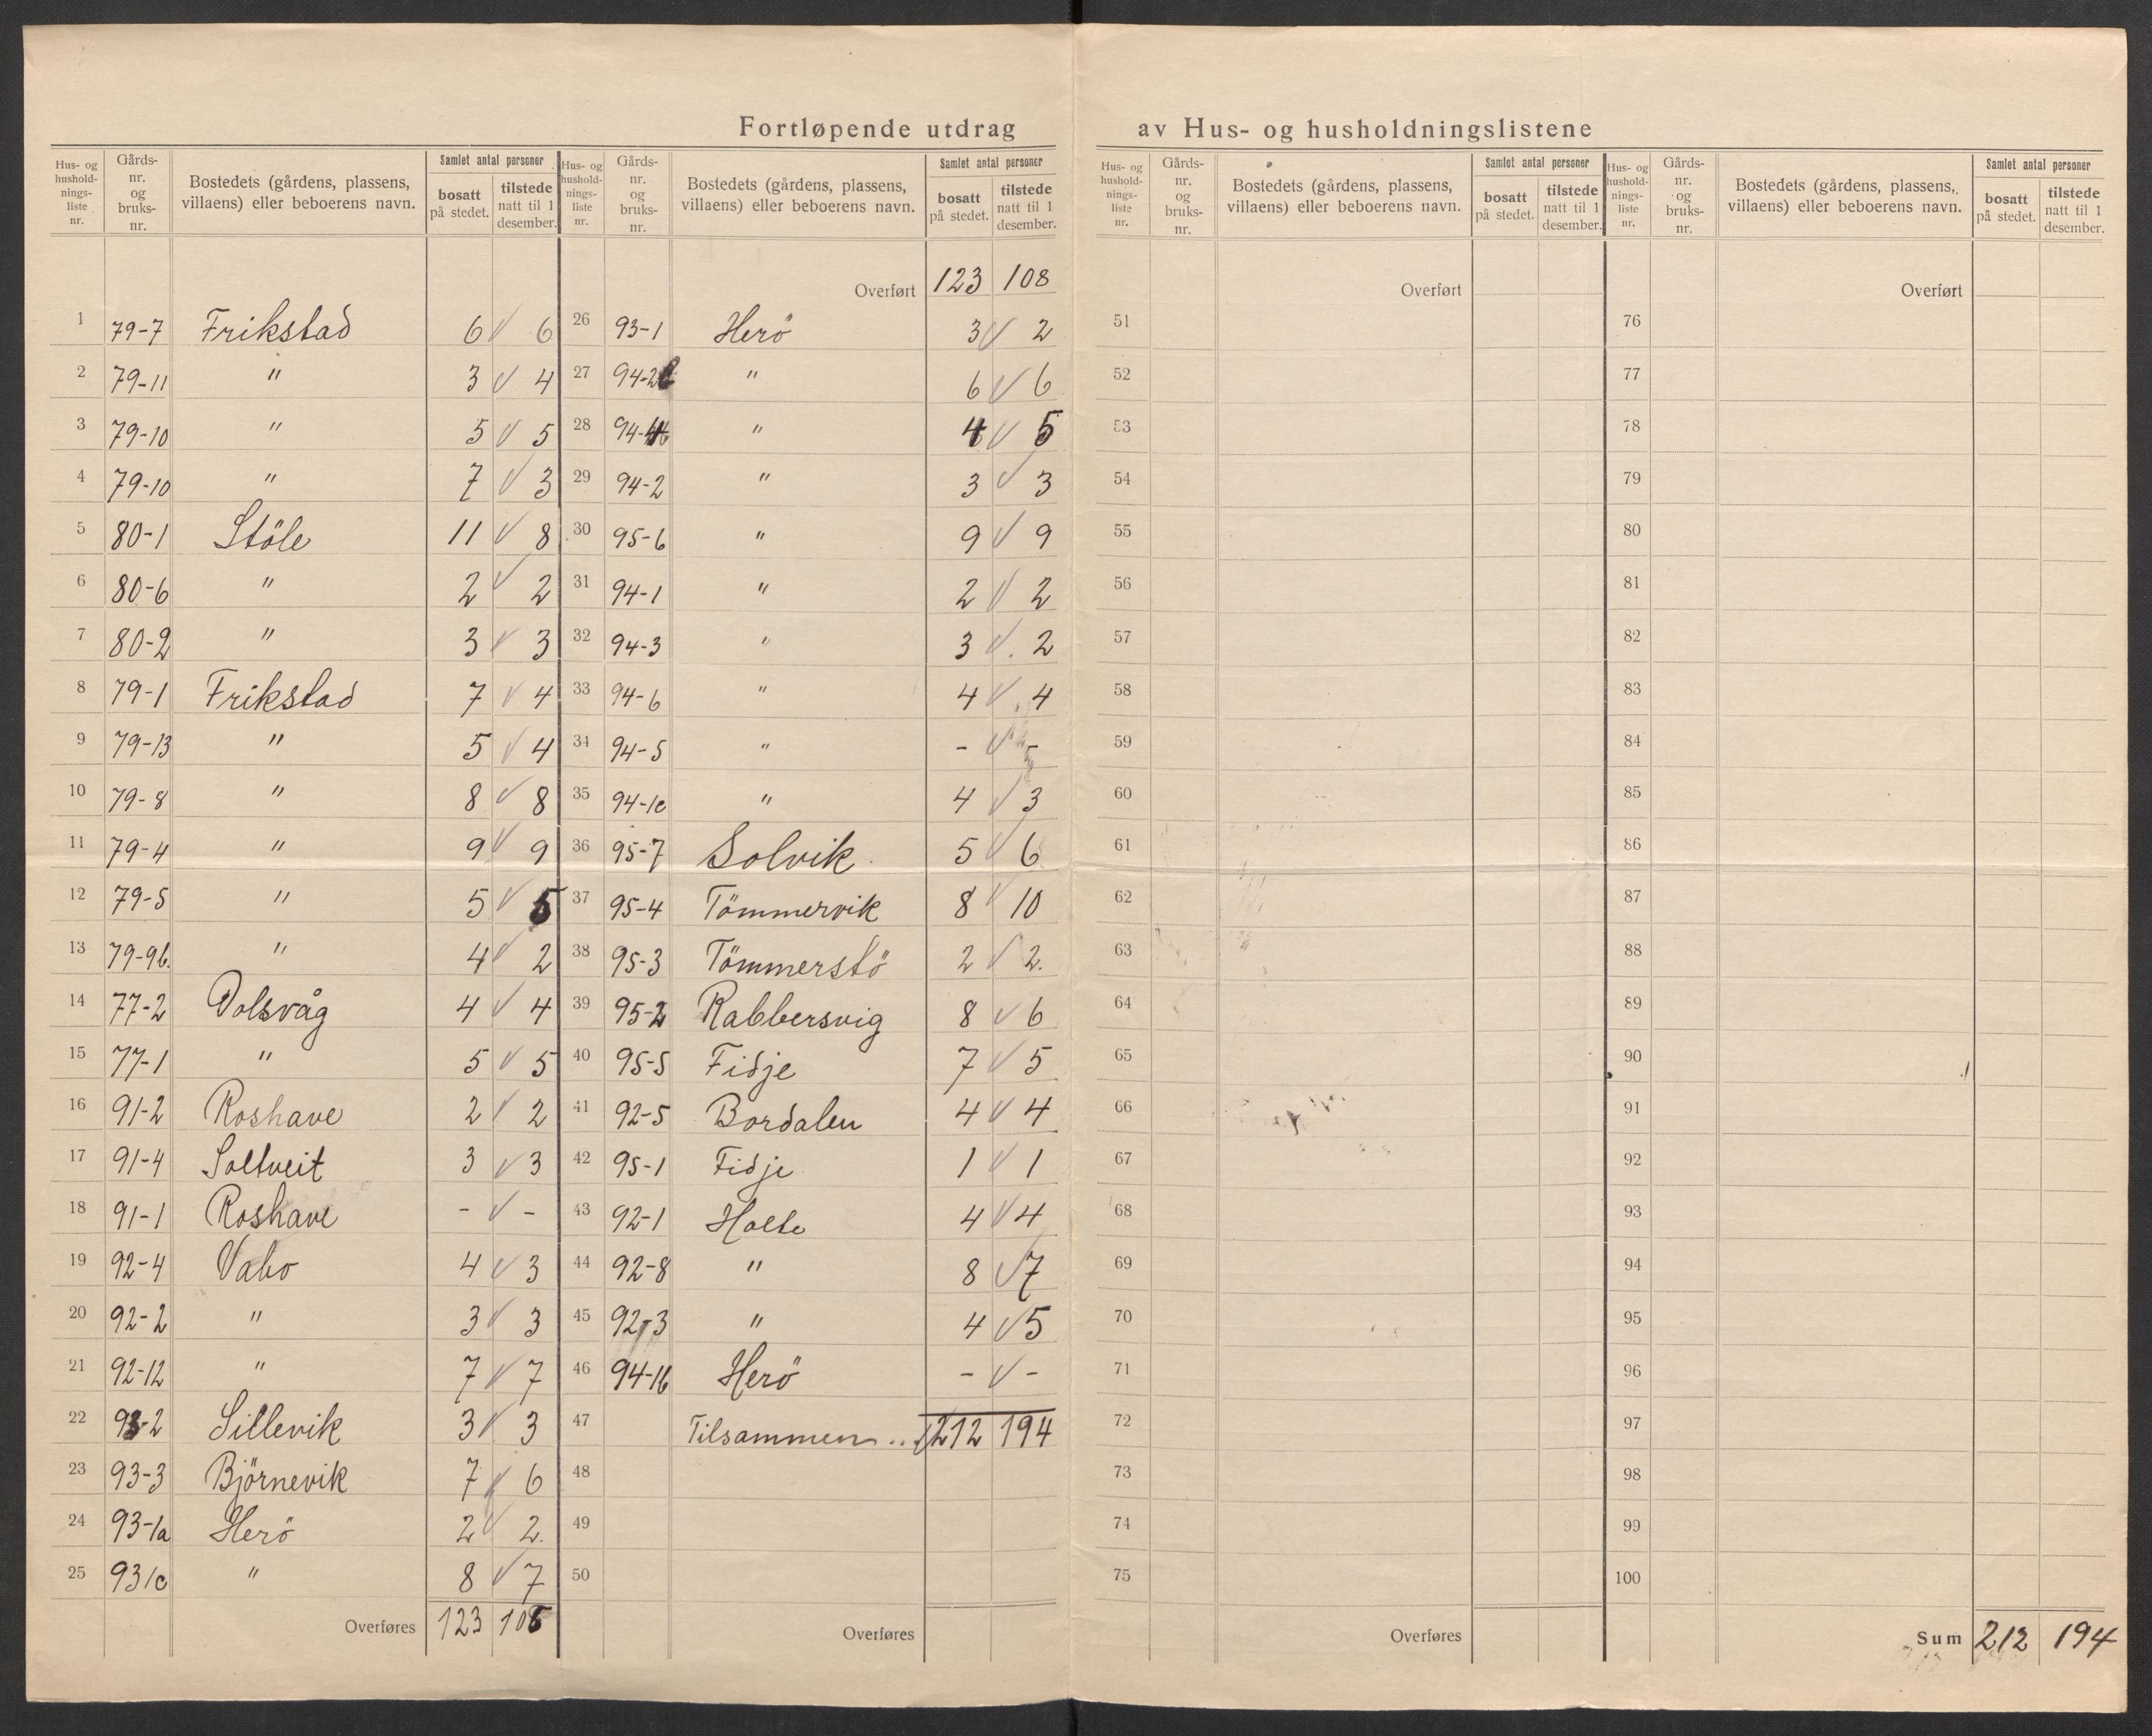 Fortløpende utdrag av Hus- og husholdningslistene
Hus- og hushold-nings-liste nr. | Gårds-nr. og bruks-nr. | Bostedets (gårdens, plassens, villaens) eller beboerens navn. | Samlet antal personer | bosatt på stedet. | tilstede natt til 1 desember.
1 79-7 Frikstad 6 6
2 79-11 " 3 4
3 79-10 " 5 5
4 79-10 " 7 3
5 80-1 Stöle 11 8
6 80-6 " 2 2
7 80-2 " 3 3
8 79-1 Frikstad 7 4
9 79-13 " 5 4
10 79-8 " 8 8
11 79-4 " 9 9
12 79-5 " 5 5
13 79-9b. " 4 2
14 77-2 Dolsvåg 4 4
15 77-1 " 5 5
16 91-2 Roshave 2 2
17 91-4 Soltveit 3 3
18 91-1 Roshave - -
19 92-4 Vabo 4 3
20 92-2 " 3 3
21 92-12 " 7 7
22 93-2 Sillevik 3 3
23 93-3 Björnevik 7 6
24 93-1a Herö 2 2.
25 93 1c " 8 7
Overføres 123 108
Hus- og hushold-nings-liste nr. | Gårds-nr. og bruks-nr. | Bostedets (gårdens, plassens, villaens) eller beboerens navn. | Samlet antal personer | bosatt på stedet. | tilstede natt til 1 desember.
Overført 123 108
26 93-1 Herö 3 2
27 94-2 " 6 6
28 94-4 " 4 5
29 94-2 " 3 3
30 95-6 " 9 9
31 94-1 " 2 2
32 94-3 " 3 2
33 94-6 " 4 4
34 94-5 " -
35 94-1c " 4 3
36 95-7 Solvik 5 6
37 95-4 Tömmervik 8 10
38 95-3 Tömmerstö 2 2.
39 95-2 Rabbersvig 8 6
40 95-5 Fidje 7 5
41 92-5 Bordalen 4 4
42 95-1 Fidje 1 1
43 92-1 Holte 4 4
44 92-8 " 8 7
45 92-3 " 4 5
46 94-1b Herö - -
47 Tilsammen .. 212 194
48
49
50
Overføres
Hus- og hushold-nings-liste nr. | Gårds-nr. og bruks-nr. | Bostedets (gårdens, plassens, villaens) eller beboerens navn. | Samlet antal personer | bosatt på stedet. | tilstede natt til 1 desember.
Overført
51
52
53
54
55
56
57
58
59
60
61
62
63
64
65
66
67
68
69
70
71
72
73
74
75
Overføres
Hus- og hushold-nings-liste nr. | Gårds-nr. og bruks-nr. | Bostedets (gårdens, plassens, villaens) eller beboerens navn. | Samlet antal personer | bosatt på stedet. | tilstede natt til 1 desember.
Overført
76
77
78
79
80
81
82
83
84
85
86
87
88
89
90
91
92
93
94
95
96
97
98
99
100
Sum 212 194